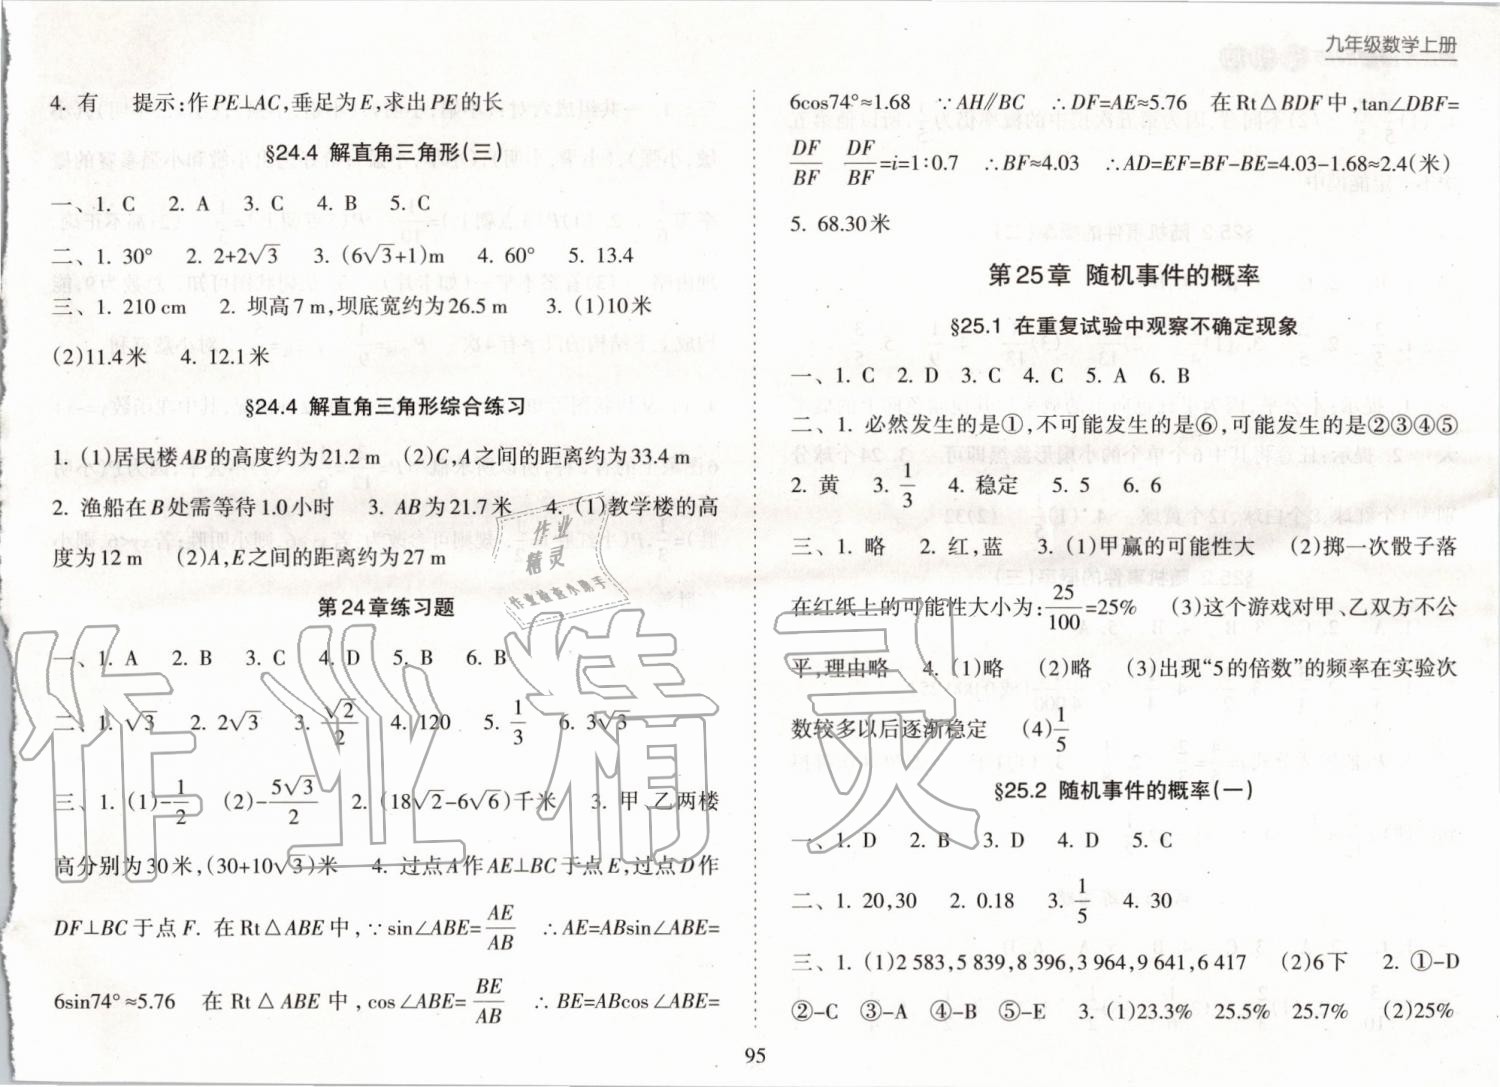 九年级数学上册
4. 有 提示:作PE⊥AC,垂足为E,求出PE的长
§24.4 解直角三角形(三)
一、1. C 2. A 3. C 4. B 5. C
二、1. 30° 2. 2+2√3 3. (6√3+1)m 4. 60° 5. 13.4
三、1. 210 cm 2. 坝高7 m,坝底宽约为26.5 m 3. (1)10米
(2)11.4米 4. 12.1米
§24.4 解直角三角形综合练习
1. (1)居民楼AB的高度约为21.2 m (2)C,A之间的距离约为33.4 m
2. 渔船在B处需等待1.0小时 3. AB为21.7米 4. (1)教学楼的高
度为12 m (2)A,E之间的距离约为27 m
第24章练习题
一、1. A 2. B 3. C 4. D 5. B 6. B
二、1. √3 2. 2√3 3. √2/2 4. 120 5. 1/3 6. 3√3
三、1. (1)-1/2 (2)-5√3/2 2. (18√2-6√6)千米 3. 甲、乙两楼
高分别为30米,(30+10√3)米 4. 过点A作AE⊥BC于点E,过点D作
DF⊥BC于点F. 在Rt△ABE中,∵sin∠ABE=AE/AB ∴AE=ABsin∠ABE=
6sin74°≈5.76 在Rt△ABE中,cos∠ABE=BE/AB ∴BE=ABcos∠ABE=
6cos74°≈1.68 ∵AH∥BC ∴DF=AE≈5.76 在Rt△BDF中,tan∠DBF=
DF/BF DF/BF=i=1:0.7 ∴BF≈4.03 ∴AD=EF=BF-BE=4.03-1.68≈2.4(米)
5. 68.30米
第25章 随机事件的概率
§25.1 在重复试验中观察不确定现象
一、1. C 2. D 3. C 4. C 5. A 6. B
二、1. 必然发生的是①,不可能发生的是⑥,可能发生的是②③④⑤
2. 黄 3. 1/3 4. 稳定 5. 5 6. 6
三、1. 略 2. 红,蓝 3. (1)甲赢的可能性大 (2)掷一次骰子落
在红纸上的可能性大小为:25/100=25% (3)这个游戏对甲、乙双方不公
平,理由略 4. (1)略 (2)略 (3)出现“5的倍数”的频率在实验次
数较多以后逐渐稳定 (4)1/5
§25.2 随机事件的概率(一)
一、1. D 2. B 3. D 4. D 5. C
二、1. 20,30 2. 0.18 3. 1/5 4. 30
三、1. (1)2 583,5 839,8 396,3 964,9 641,6 417 (2)6下 2. ①-D
②-C ③-A ④-B ⑤-E 3. (1)23.3% 25.5% 25.7% (2)25%
95
作业
精灵
作业检查小助手
作业精灵